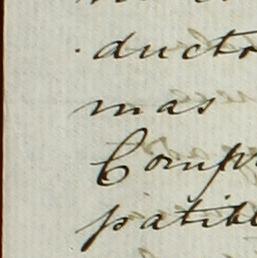 ducto
mas
Comp
patibl